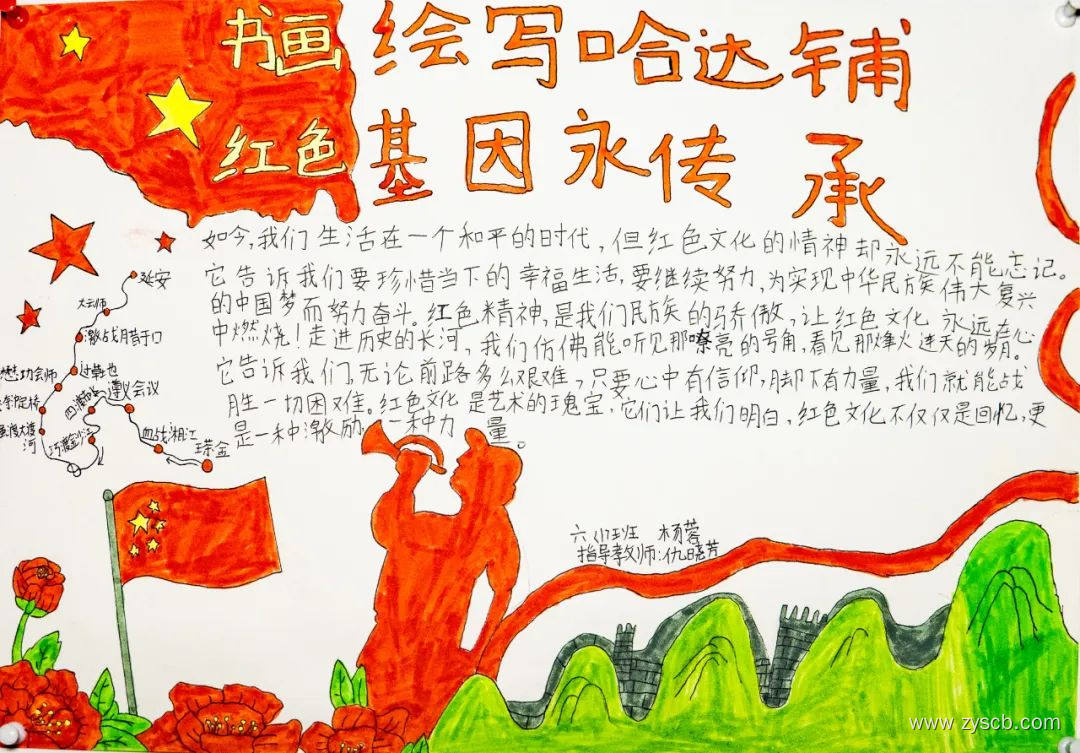 书画绘写哈达铺
红色基因永传承
如今,我们生活在一个和平的时代,但红色文化的情神却永远不能忘记。
它告诉我们要珍惜当下的幸福生活,要继续努力,为实现中华民族伟大复兴
的中国梦而努力奋斗。红色精神,是我们民族的骄傲,让红色文化永远在心
中燃烧!走进历史的长河,我们仿佛能听见那嘹亮的号角,看见那烽火连天的岁月。
它告诉我们,无论前路多么艰难,只要心中有信仰,脚下有力量,我们就能战
胜一切困难。红色文化是艺术的瑰宝,它们让我们明白,红色文化不仅仅是回忆,更
是一种激励,一种力量。
延安
大会师
激战腊子口
过草地
懋功会师
遵义会议
血战湘江
瑞金
六(1)班 杨蓉
指导教师:仇晓芳
www.zyscb.com